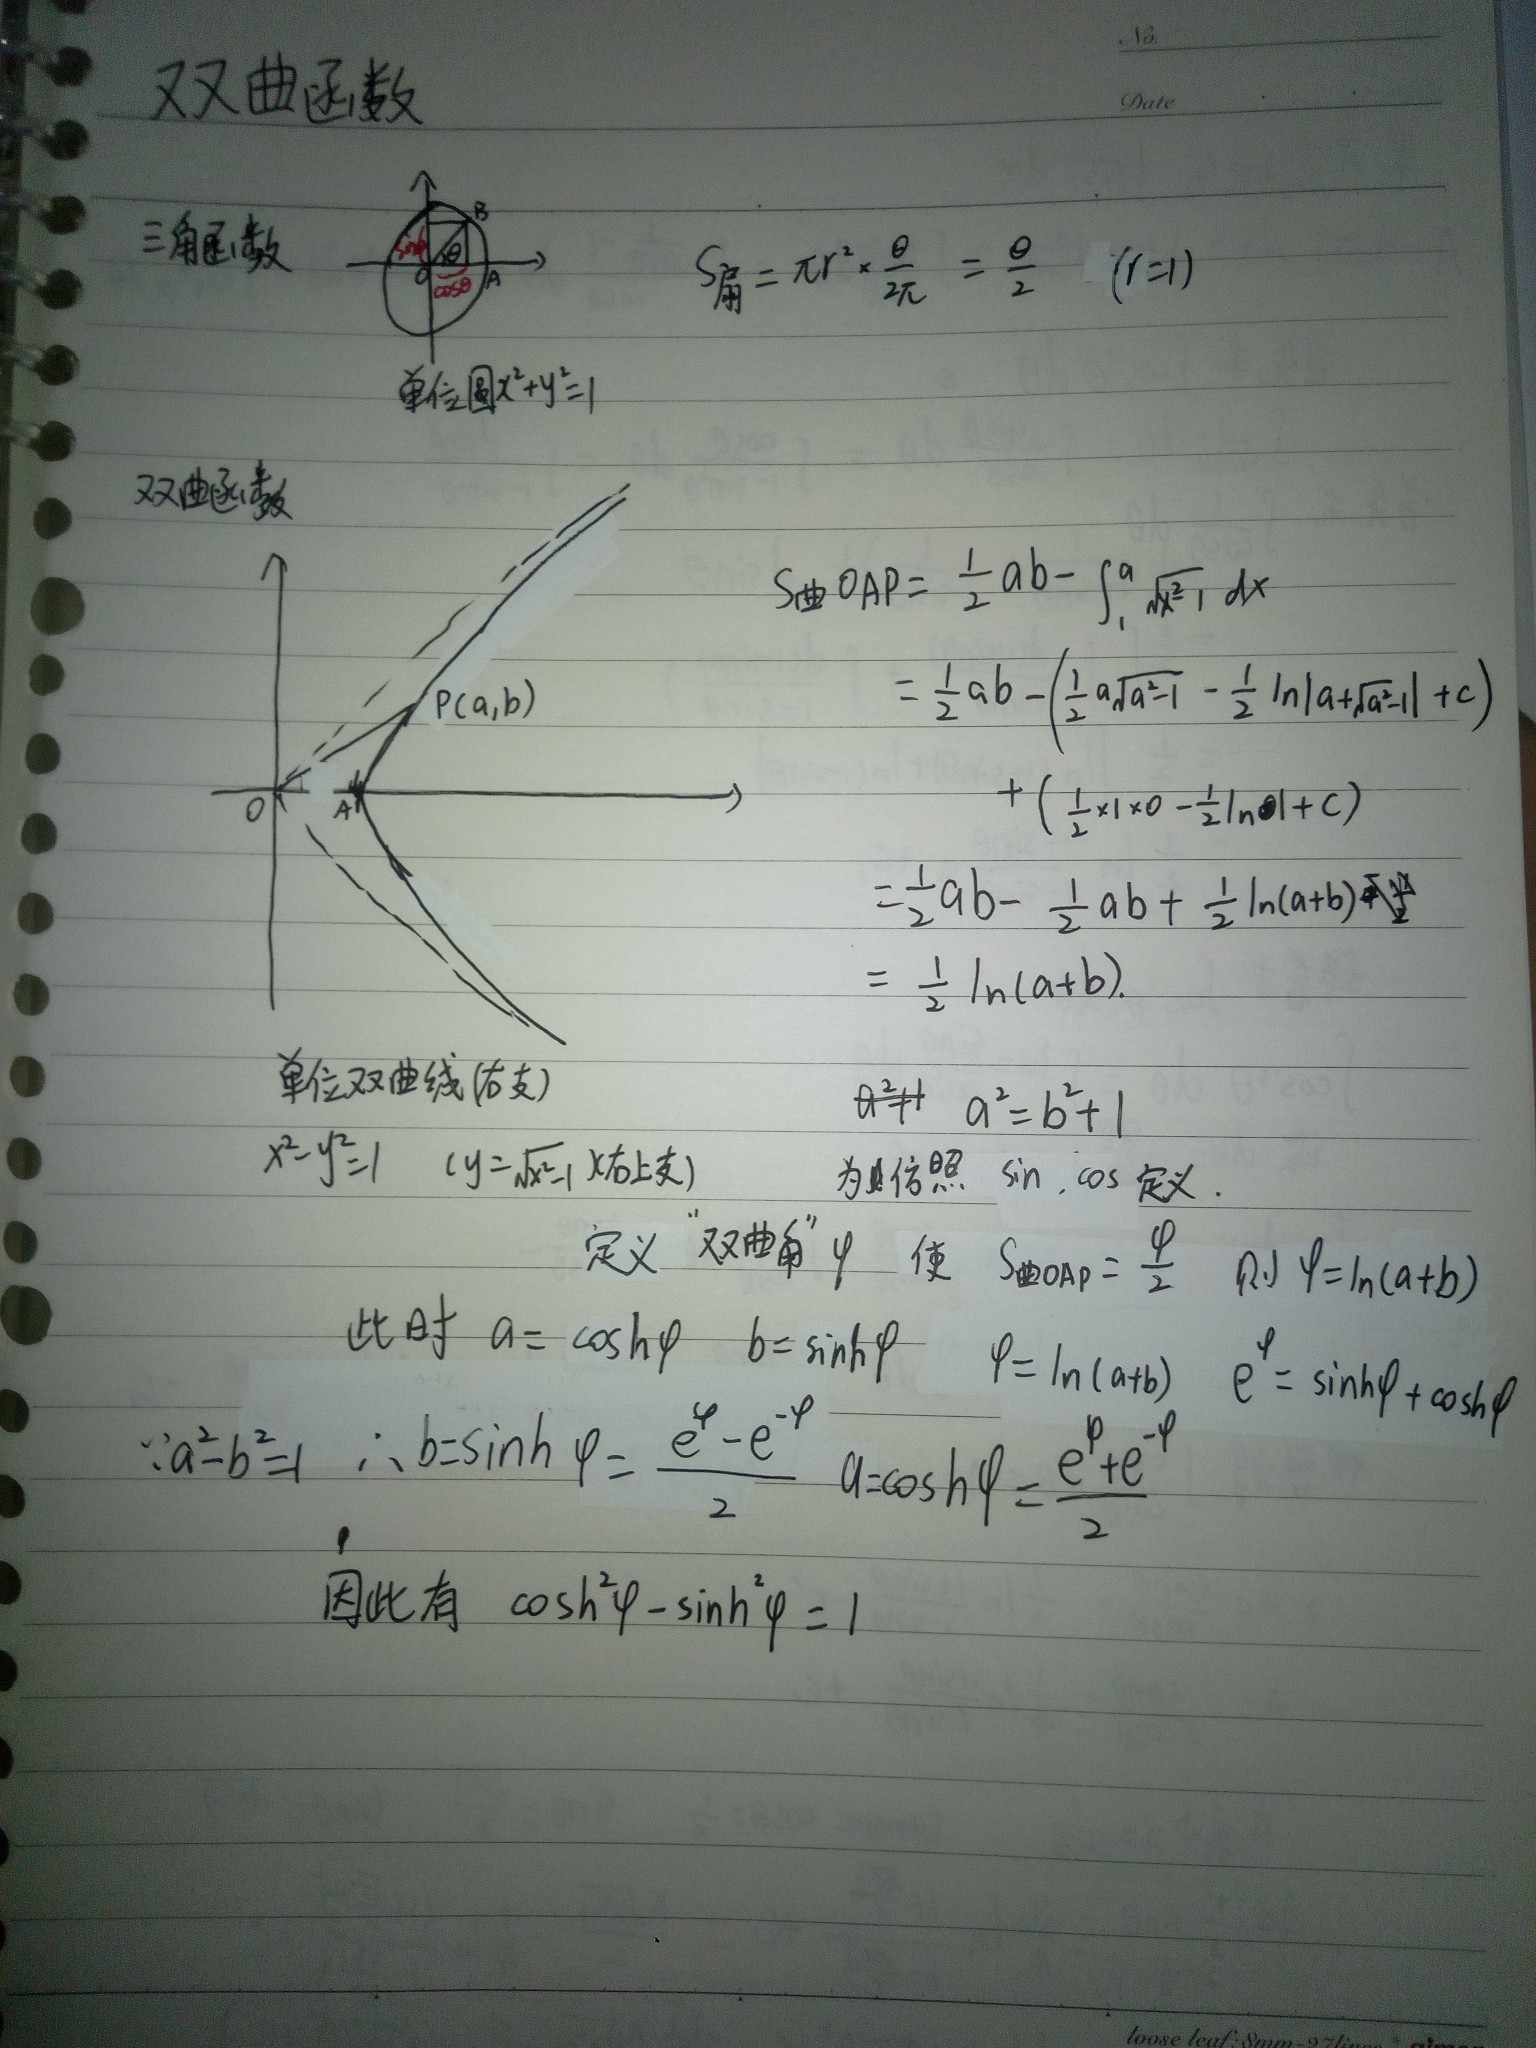 No.
Date
双曲函数
三角函数
B
sinθ
θ
O
cosθ
A
S扇 = πr² × θ/2π = θ/2 (r=1)
单位圆x²+y²=1
双曲函数
P(a,b)
O
A
S曲OAP = 1/2 ab - ∫₁ᵃ √(x²-1) dx
= 1/2 ab - (1/2 a√(a²-1) - 1/2 ln|a+√(a²-1)| + c)
+ (1/2 × 1 × 0 - 1/2 ln 1 + C)
= 1/2 ab - 1/2 ab + 1/2 ln(a+b)
= 1/2 ln(a+b).
单位双曲线(右支)
x²-y²=1 (y=√(x²-1))(右上支)
a²=b²+1
为仿照 sin, cos 定义.
定义“双曲角”φ 使 S曲OAP = φ/2 则 φ=ln(a+b)
此时 a = coshφ b = sinhφ φ = ln(a+b) e^φ = sinhφ + coshφ
∵a²-b²=1 ∴b=sinh φ = (e^φ - e^-φ)/2 a=coshφ = (e^φ+e^-φ)/2
因此有 cosh²φ - sinh²φ = 1
loose leaf: 8mm-27lines